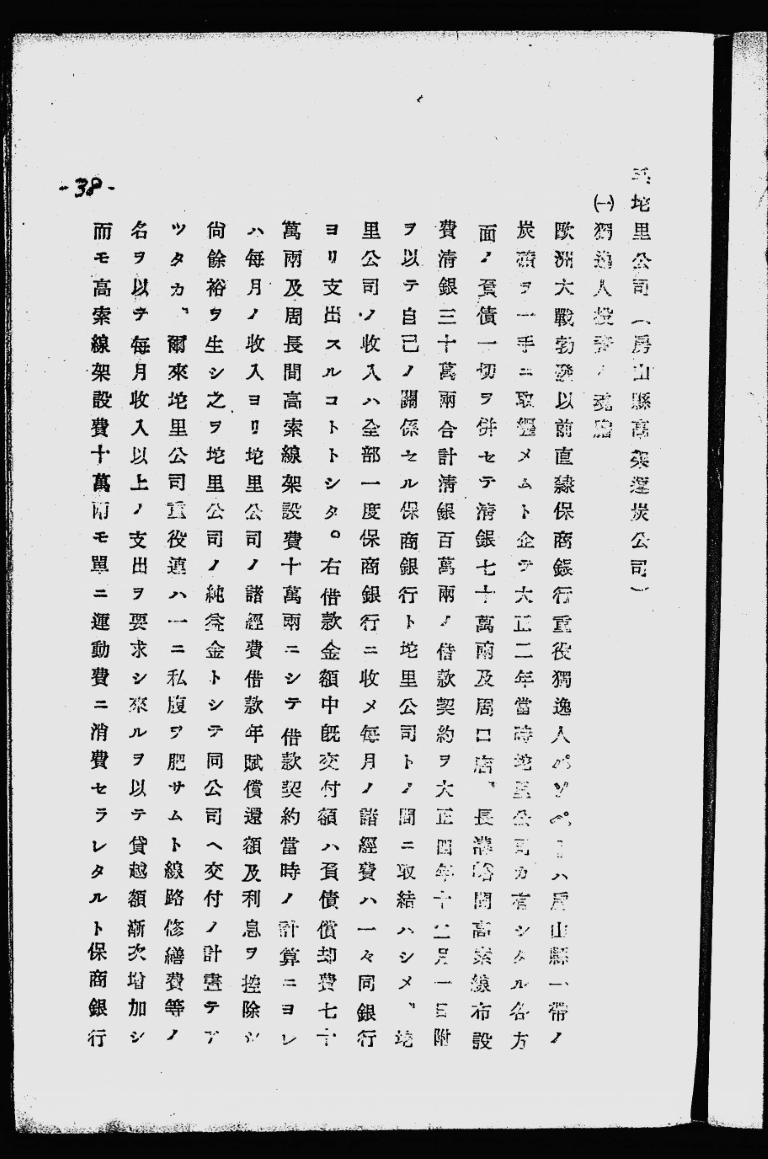 坨里公司(房山縣高架運炭公司)
㈠獨逸人投資ノ魂膽
歐洲大戰勃發以前直隸保商銀行重役獨逸人バハ房山縣一帶ノ
炭礦ヲ一手ニ取纒メムト企テ大正二年當時坨里公司カ有シタル各方
面ノ負債一切ヲ併セテ淸銀七十萬兩及周口店、長溝峪間高索線布設
費淸銀三十萬兩合計淸銀百萬兩ノ借款契約ヲ大正四年十二月一日附
ヲ以テ自己ノ關係セル保商銀行ト坨里公司トノ間ニ取結ハシメ、坨
里公司ノ收入ハ全部一度保商銀行ニ收メ每月ノ諸經費ハ一々同銀行
ヨリ支出スルコトトシタ。右借款金額中旣交付額ハ負債償却費七十
萬兩及周長間高索線架設費十萬兩ニシテ借款契約當時ノ計算ニヨレ
ハ每月ノ收入ヨリ坨里公司ノ諸經費借款年賦償還額及利息ヲ控除シ
尙餘裕ヲ生シ之ヲ坨里公司ノ純益金トシテ同公司ヘ交付ノ計畫テア
ツタカ、爾來坨里公司重役連ハ一ニ私腹ヲ肥サムト線路修繕費等ノ
名ヲ以テ每月收入以上ノ支出ヲ要求シ來ルヲ以テ貸越額漸次增加シ
而モ高索線架設費十萬兩モ單ニ運動費ニ消費セラレタルト保商銀行
-38-